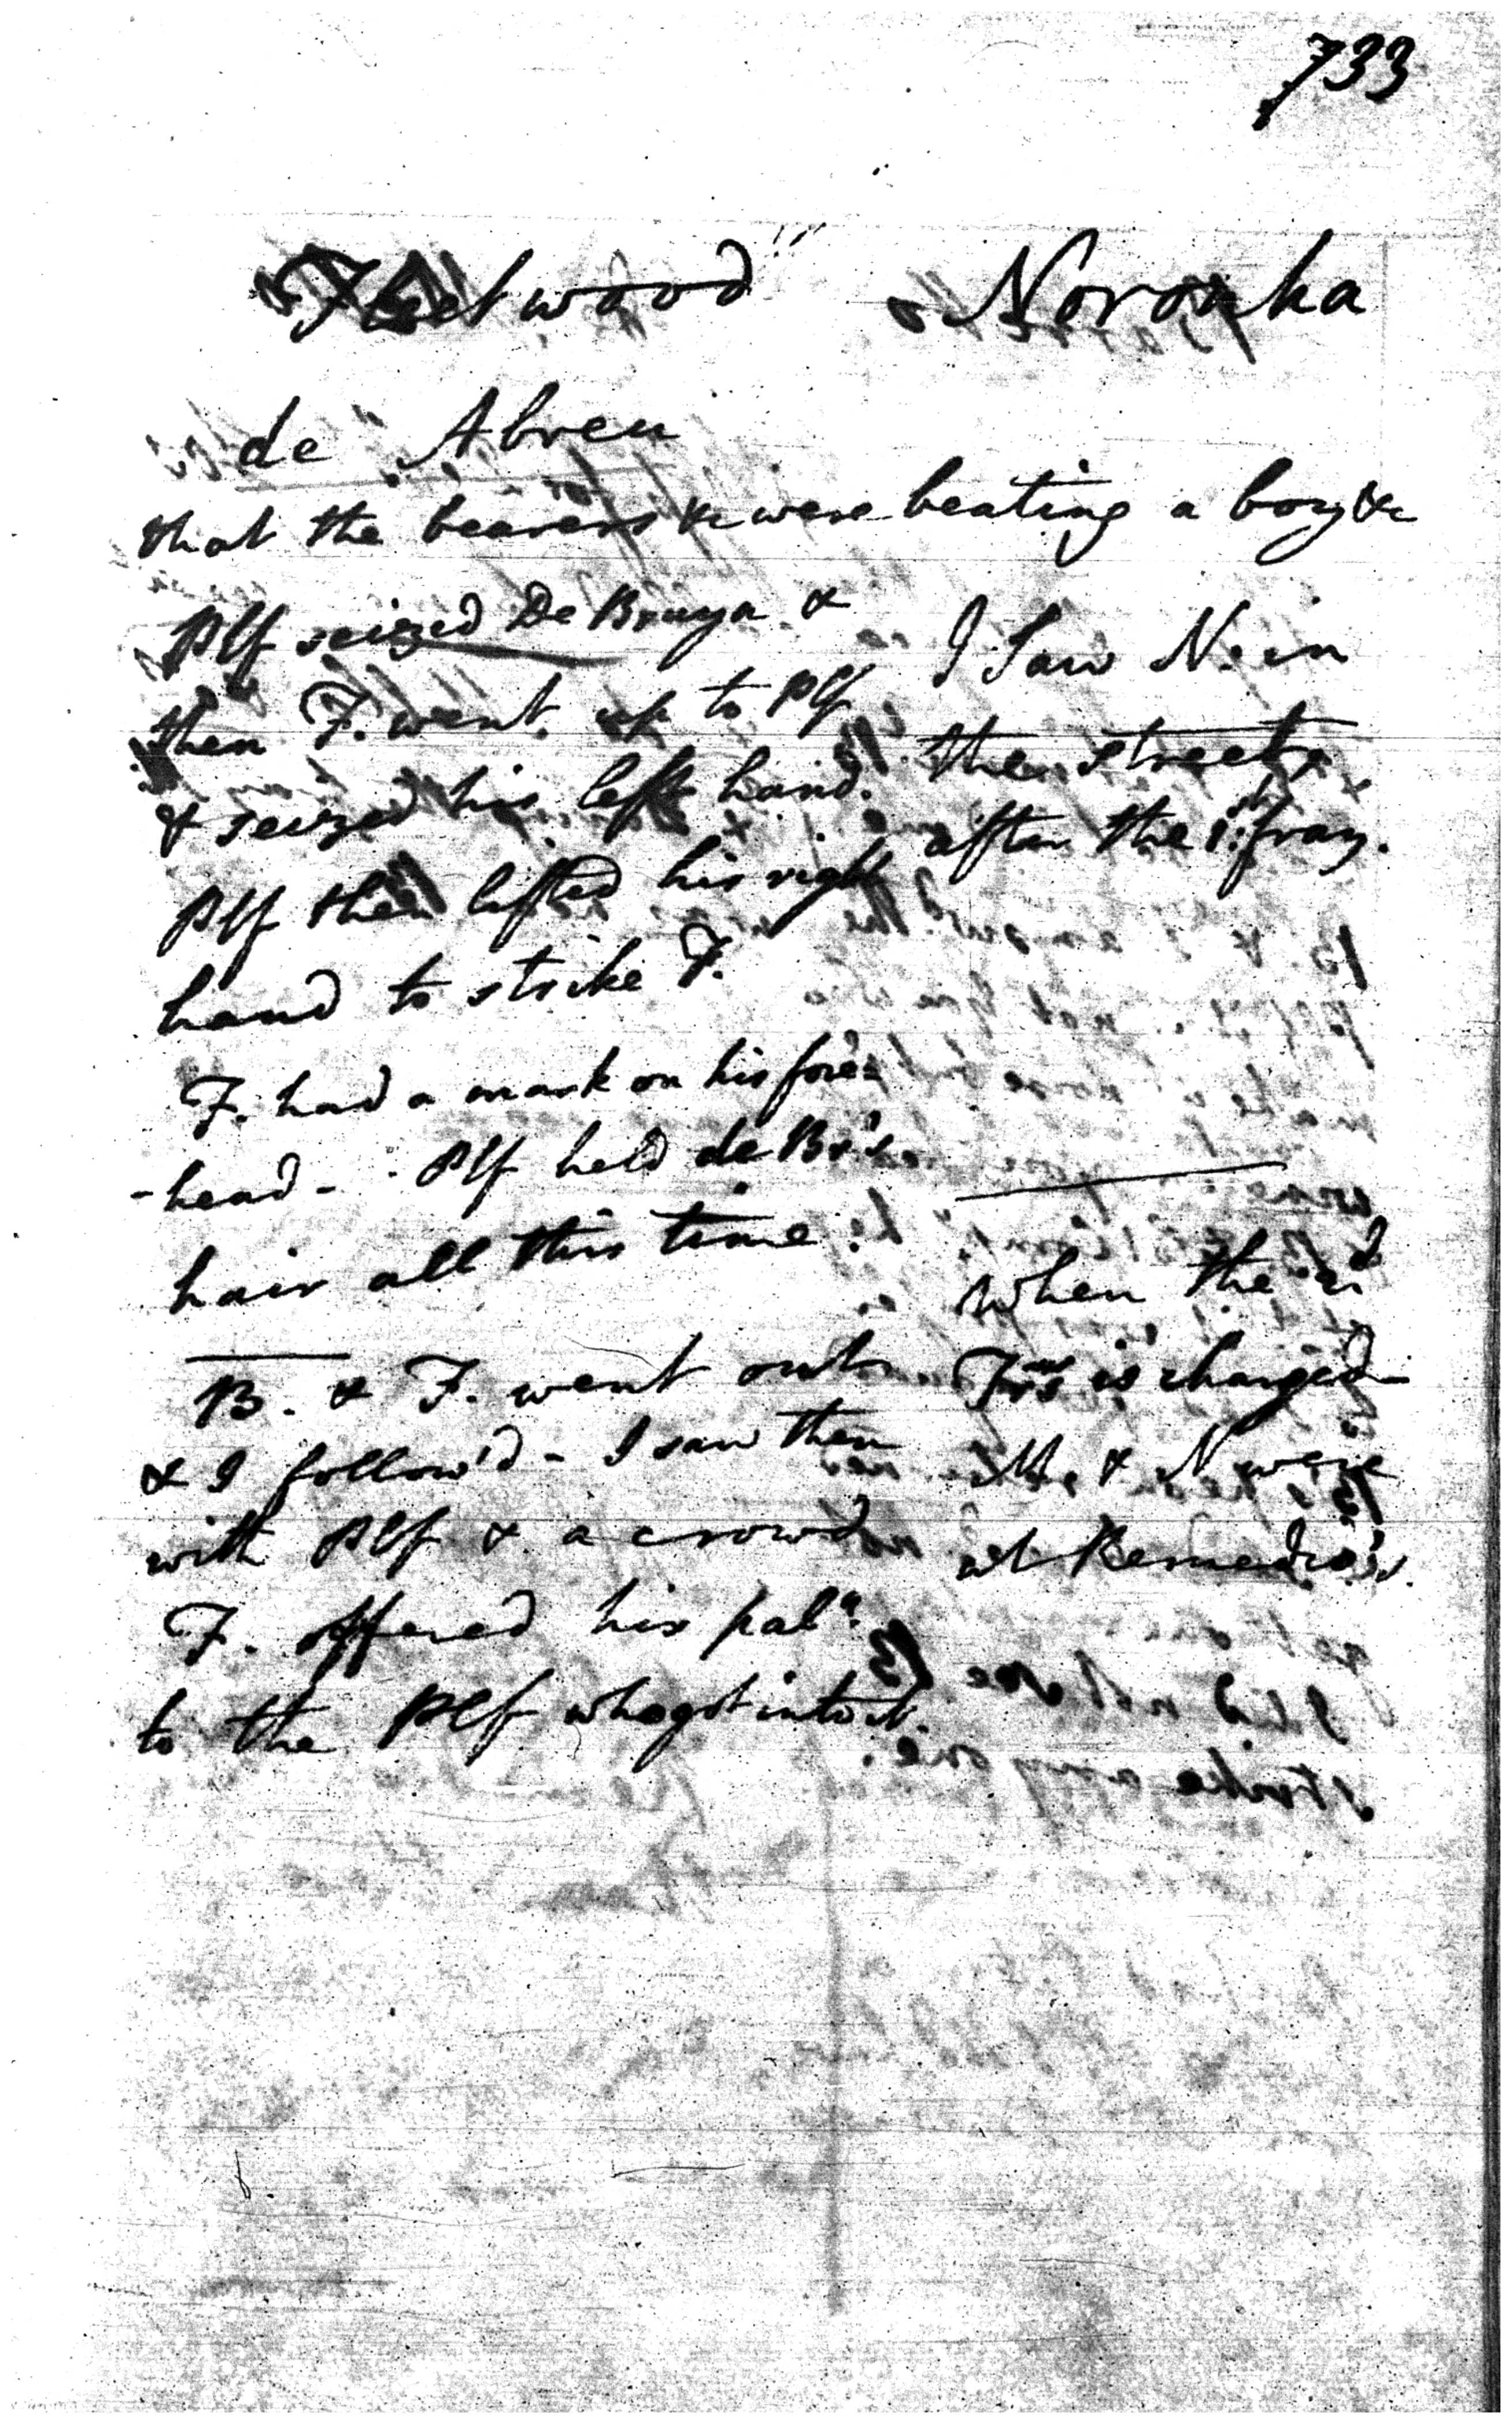 733
Fleetwood Noronha
de Abreu
that the bearers &c were beating a boy &c
Plf seized De Bruyn &
then F. went up to Plf
& seized his left hand.
Plf then lifted his right
hand to strike F.
F. had a mark on his fore=
-head - Plf held de Br's
hair all this time.
B. & F. went out
& I follow'd - I saw then
with Plf & a crowd
F. offered his pal.n
to the Plf who got into it.
I saw N. in
the street,
after the 1st fray.
When the 2d
is charged
M. & N were
at Remedio's.